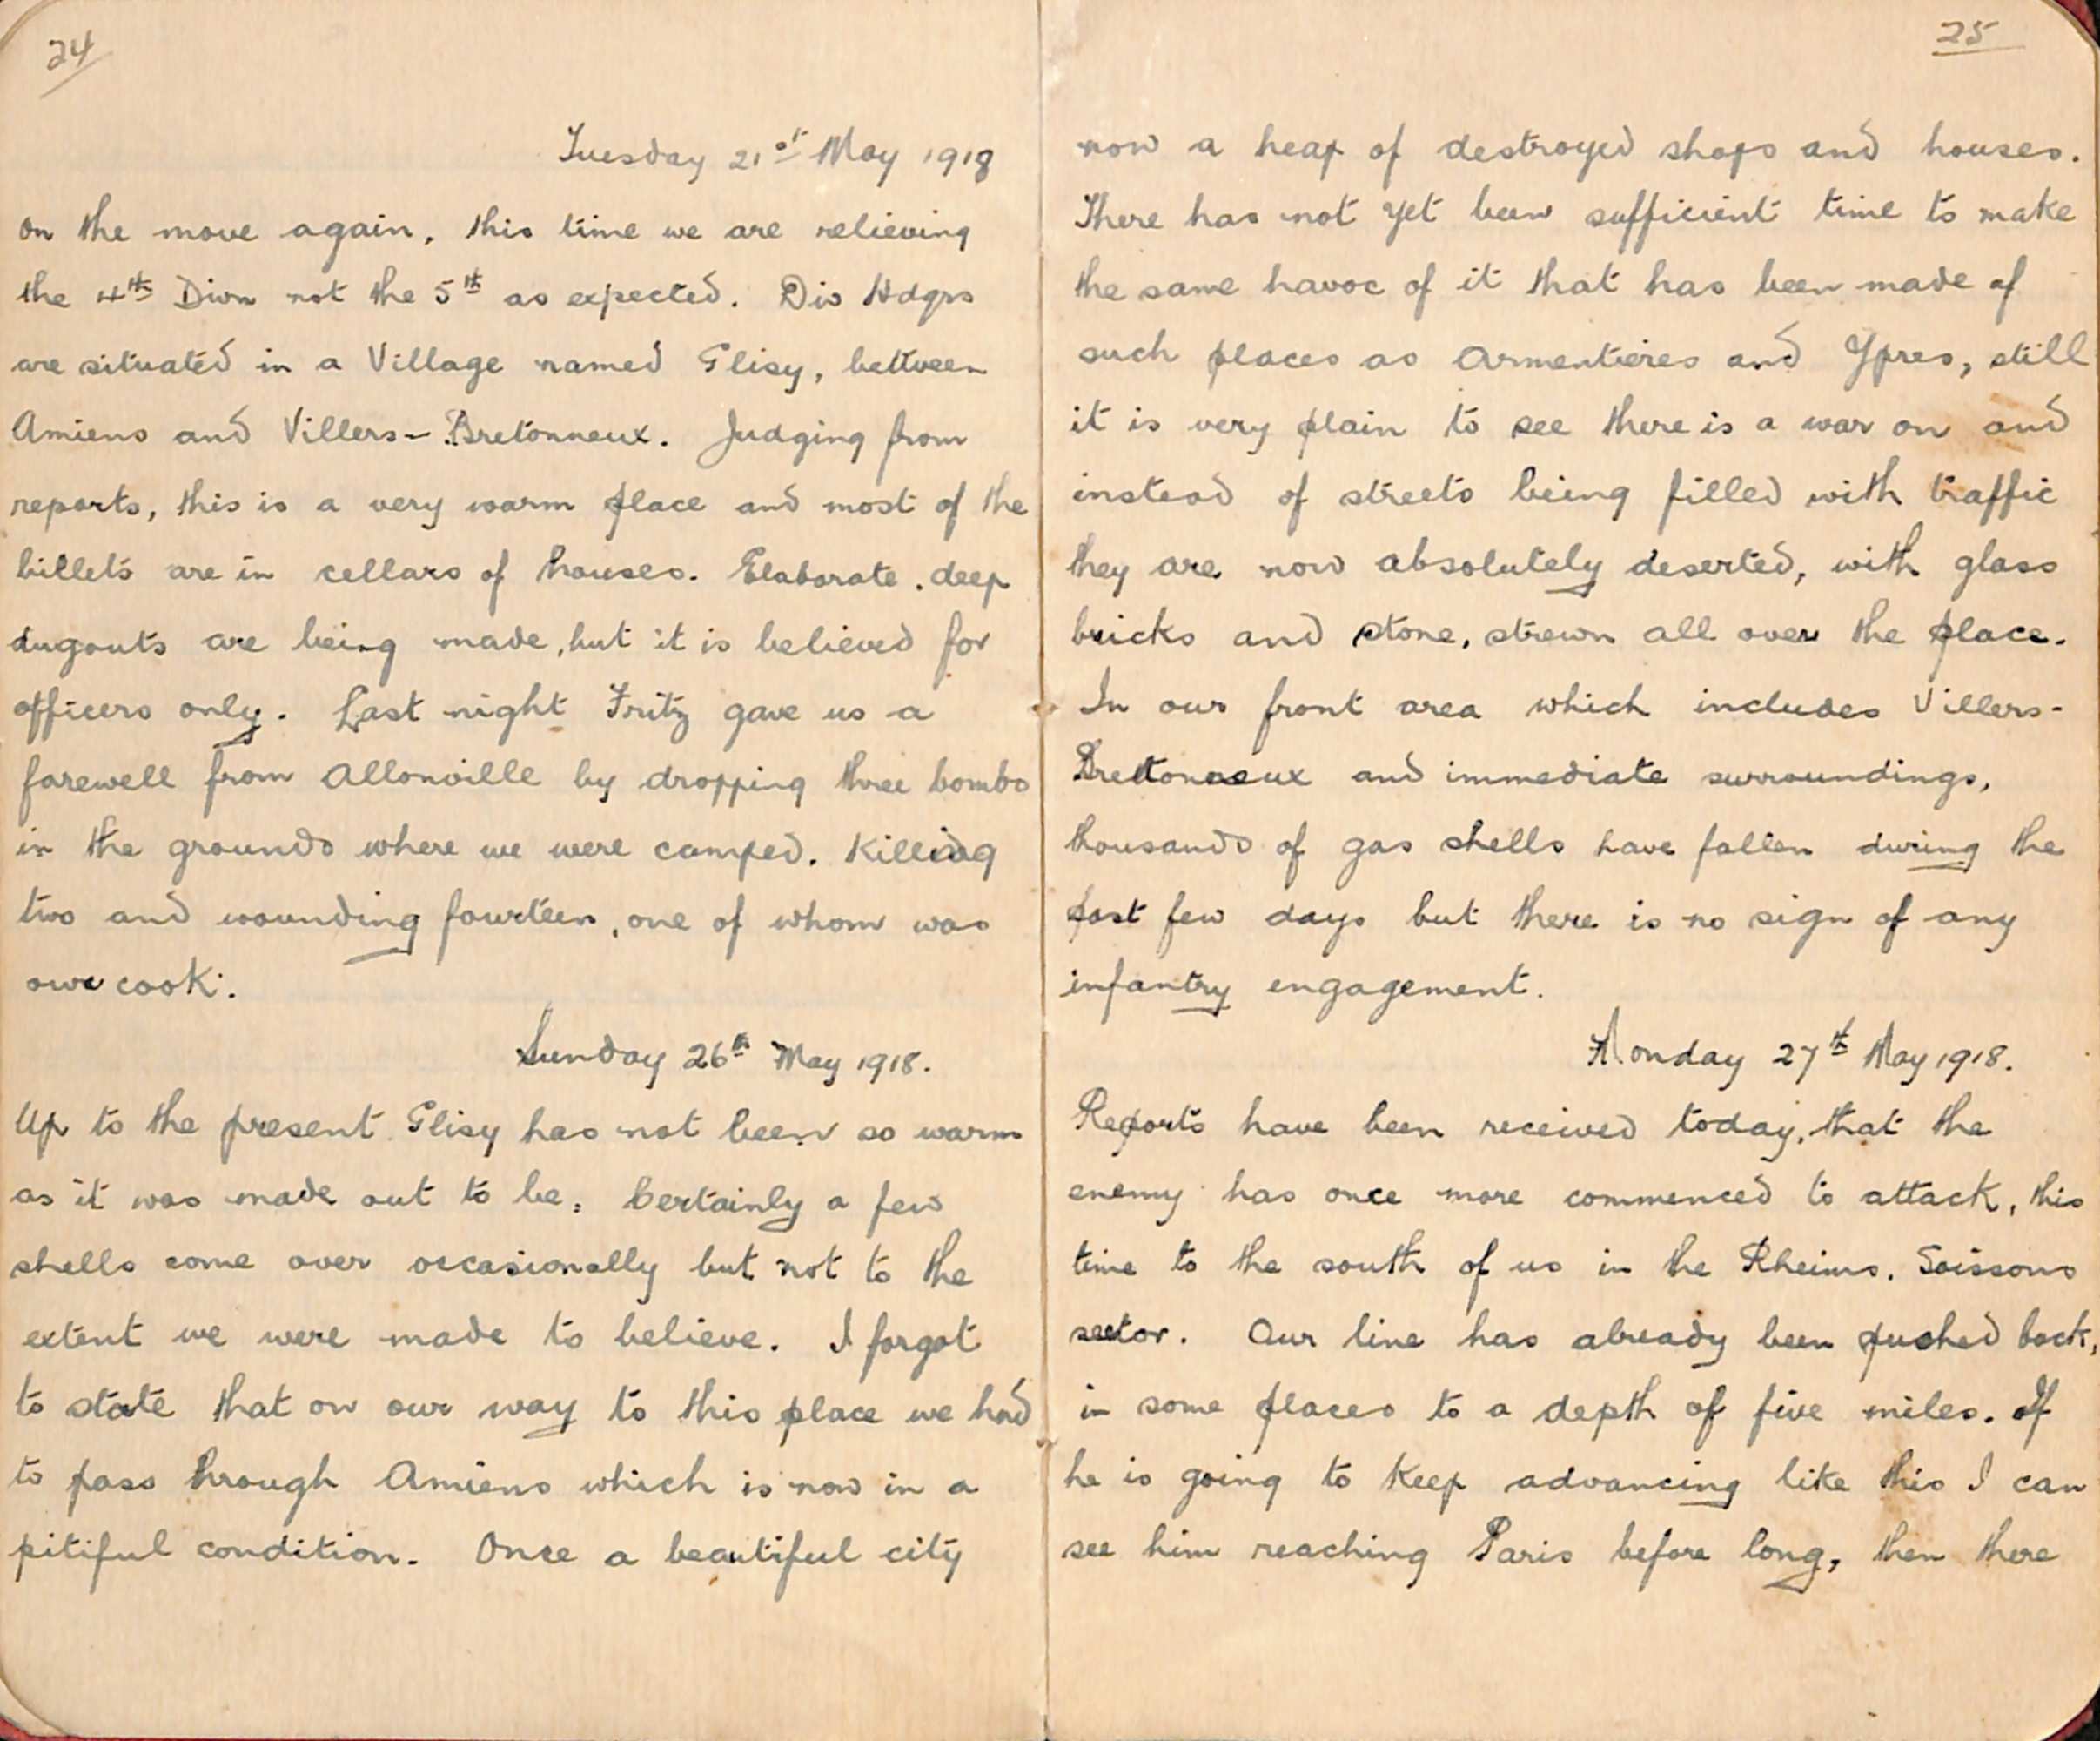 24
Tuesday 21st May 1918
on the move again, this time we are relieving
the 4th Divn not the 5th as expected. Div Hdqrs
are situated in a Village named Glisy, between
Amiens and Villers-Bretonneux. Judging from
reports, this is a very warm place and most of the
billets are in cellars of houses. Elaborate deep
dugouts are being made, but it is believed for
officers only. Last night Fritz gave us a
farewell from Allonville by dropping three bombs
in the grounds where we were camped. Killing
two and wounding fourteen, one of whom was
our cook.
Sunday 26th May 1918.
Up to the present Glisy has not been so warm
as it was made out to be. Certainly a few
shells come over occasionally but not to the
extent we were made to believe. I forgot
to state that on our way to this place we had
to pass through Amiens which is now in a
pitiful condition. Once a beautiful city
25
now a heap of destroyed shops and houses.
There has not yet been sufficient time to make
the same havoc of it that has been made of
such places as Armentieres and Ypres, still
it is very plain to see there is a war on and
instead of streets being filled with traffic
they are now absolutely deserted, with glass
bricks and stone, strewn all over the place.
In our front area which includes Villers-
Bretonneux and immediate surroundings,
thousands of gas shells have fallen during the
past few days but there is no sign of any
infantry engagement.
Monday 27th May 1918.
Reports have been received today, that the
enemy has once more commenced to attack, this
time to the south of us in the Rheims. Soissons
sector. Our line has already been pushed back,
in some places to a depth of five miles. If
he is going to keep advancing like this I can
see him reaching Paris before long, then there